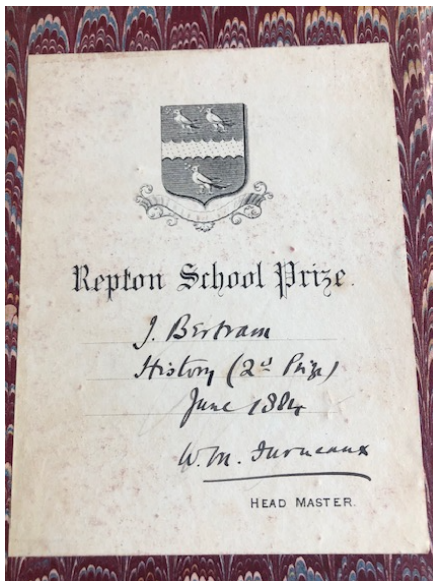 Repton School Prize.
J. Bertram
History (2d Prize)
June 1884
W. M. Furneaux
HEAD MASTER.